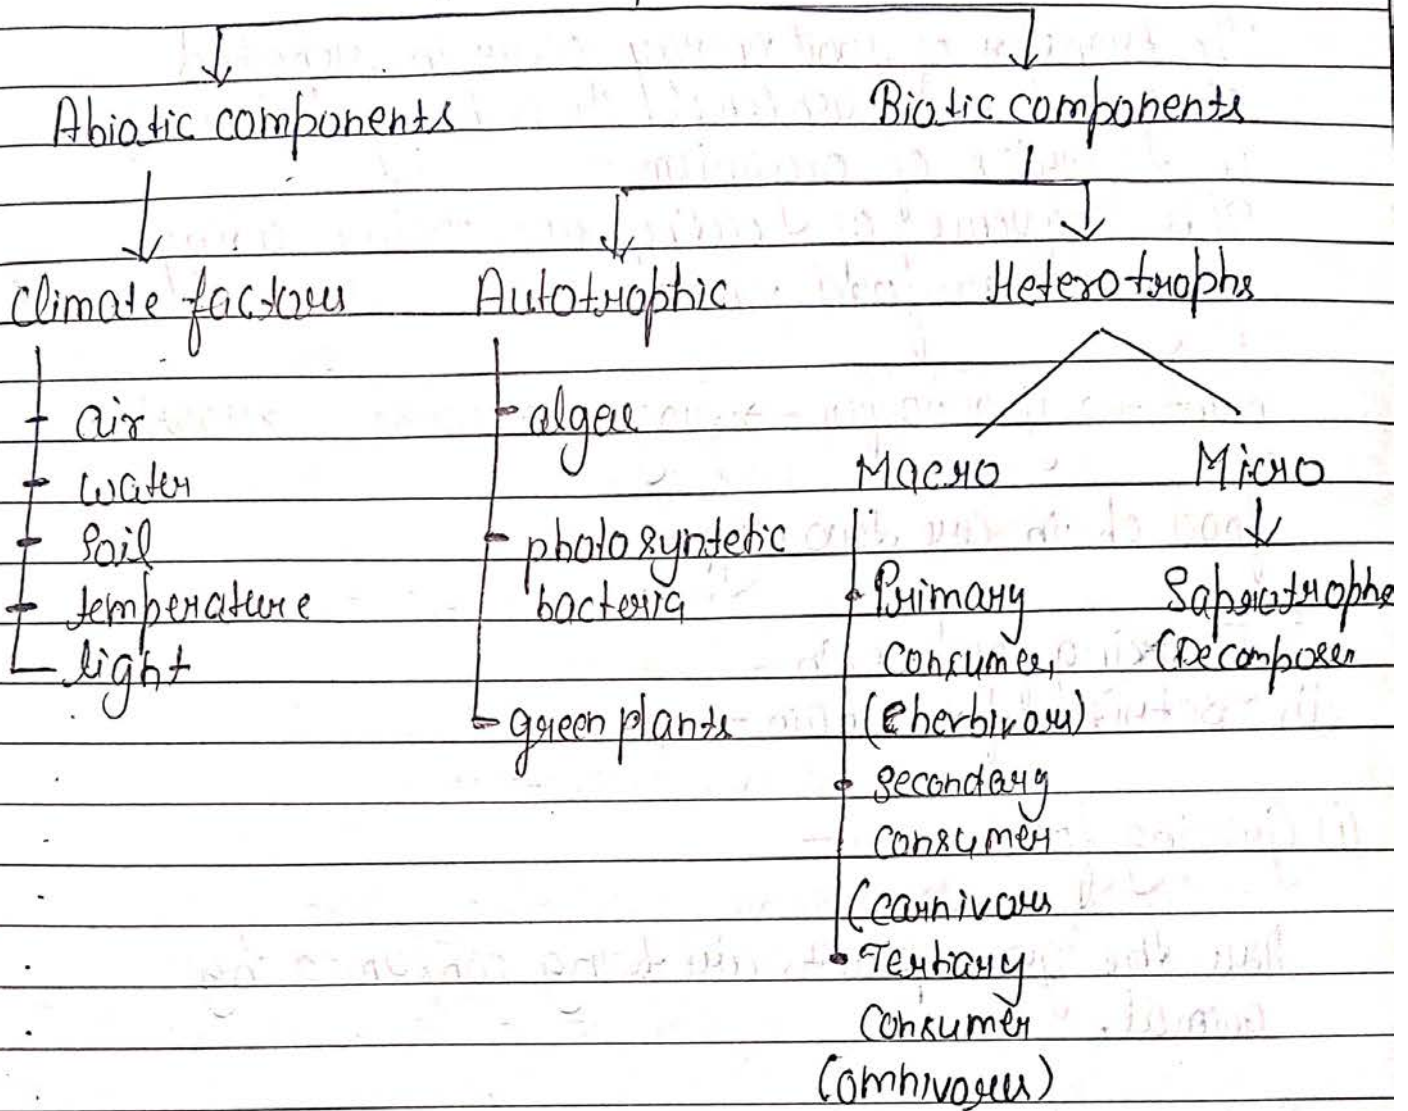 Abiotic components
Biotic components
Climate factors
Autotrophic
Heterotrophs
air
water
Soil
temperature
light
algae
photosyntetic
bacteria
green plants
Macro
Primary
Consumer
(herbivors)
Secondary
Consumer
(carnivors
Tertiary
Consumer
(omnivores)
Micro
Saprotrophs
(Decomposer